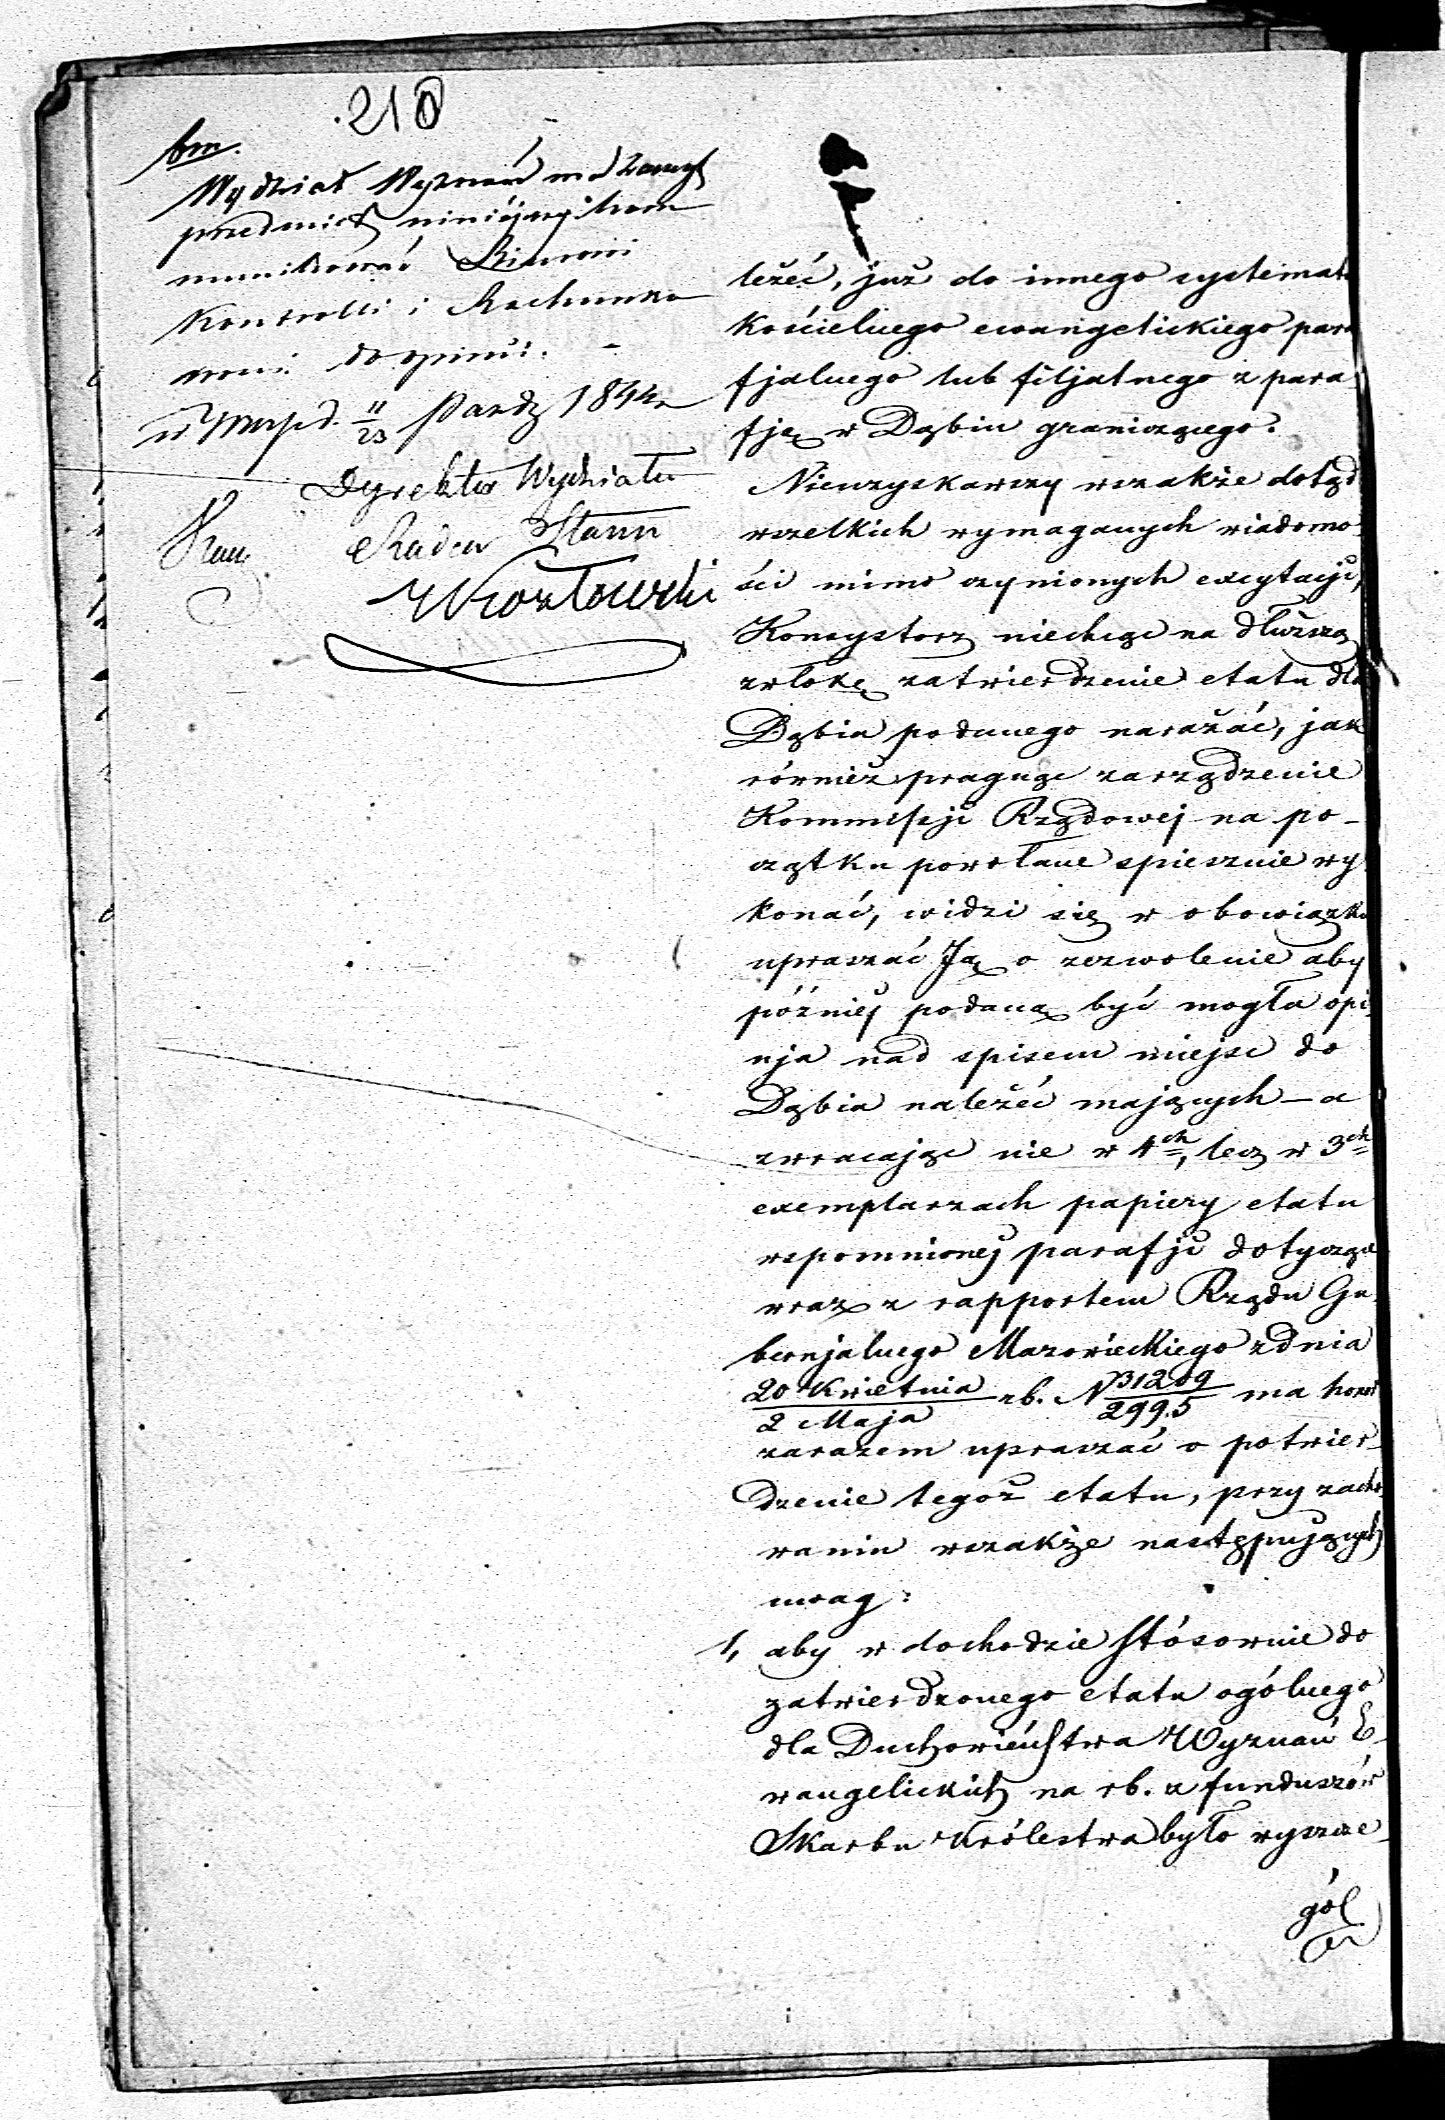 210
bm.
Wydział Wyznań ma zaszcz
przedmiot niniejszy kom
munikować Biurowi
Kontrolli i Rachunko
wemu do opinii. -
w Warsz d. 11/23 Paźdz 1844 r
Dyrektor Wydziału
Radca Stanu
Kozłowski
leżeć, już do innego systemat
Kościelnego ewangelickiego para
fjalnego lub filjalnego z para
fją w Dąbiu graniczącego.
Nieuzyskawszy wszakże dotąd
wszelkich wymaganych wiadomo
ści mimo czynionych excytacji,
Konsystorz niechcąc na dłuższą
zwłokę zatwierdzenie etatu dla
Dąbia podanego narażać, jak
również pragnąc zarządzenie
Kommissji Rządowej na po-
czątku powołane spiesznie wy
konać, widzi się w obowiązku
upraszać Ją o zezwolenie aby
później podaną być mogła opi
nja nad spisem miejsc do
Dąbia należeć mających – a
zwracając nie w 4ch, lecz w 3ch
exemplarzach papiery etatu
wspomnionej parafji dotyczące
wraz z rapportem Rządu Gu
bernjalnego Mazowieckiego z dnia
20 Kwietnia / 2 Maja r b. N 31209 / 2995 ma honor
zarazem upraszać o potwier-
dzenie tegoż etatu, przy zacho
waniu wszakże następujących
uwag:
1, aby w dochodzie stósownie do
zatwierdzonego etatu ogólnego
dla Duchowieństwa Wyznań E-
wangelickich na rb. z funduszów
Skarbu Królestwa było wyszcze-
gól